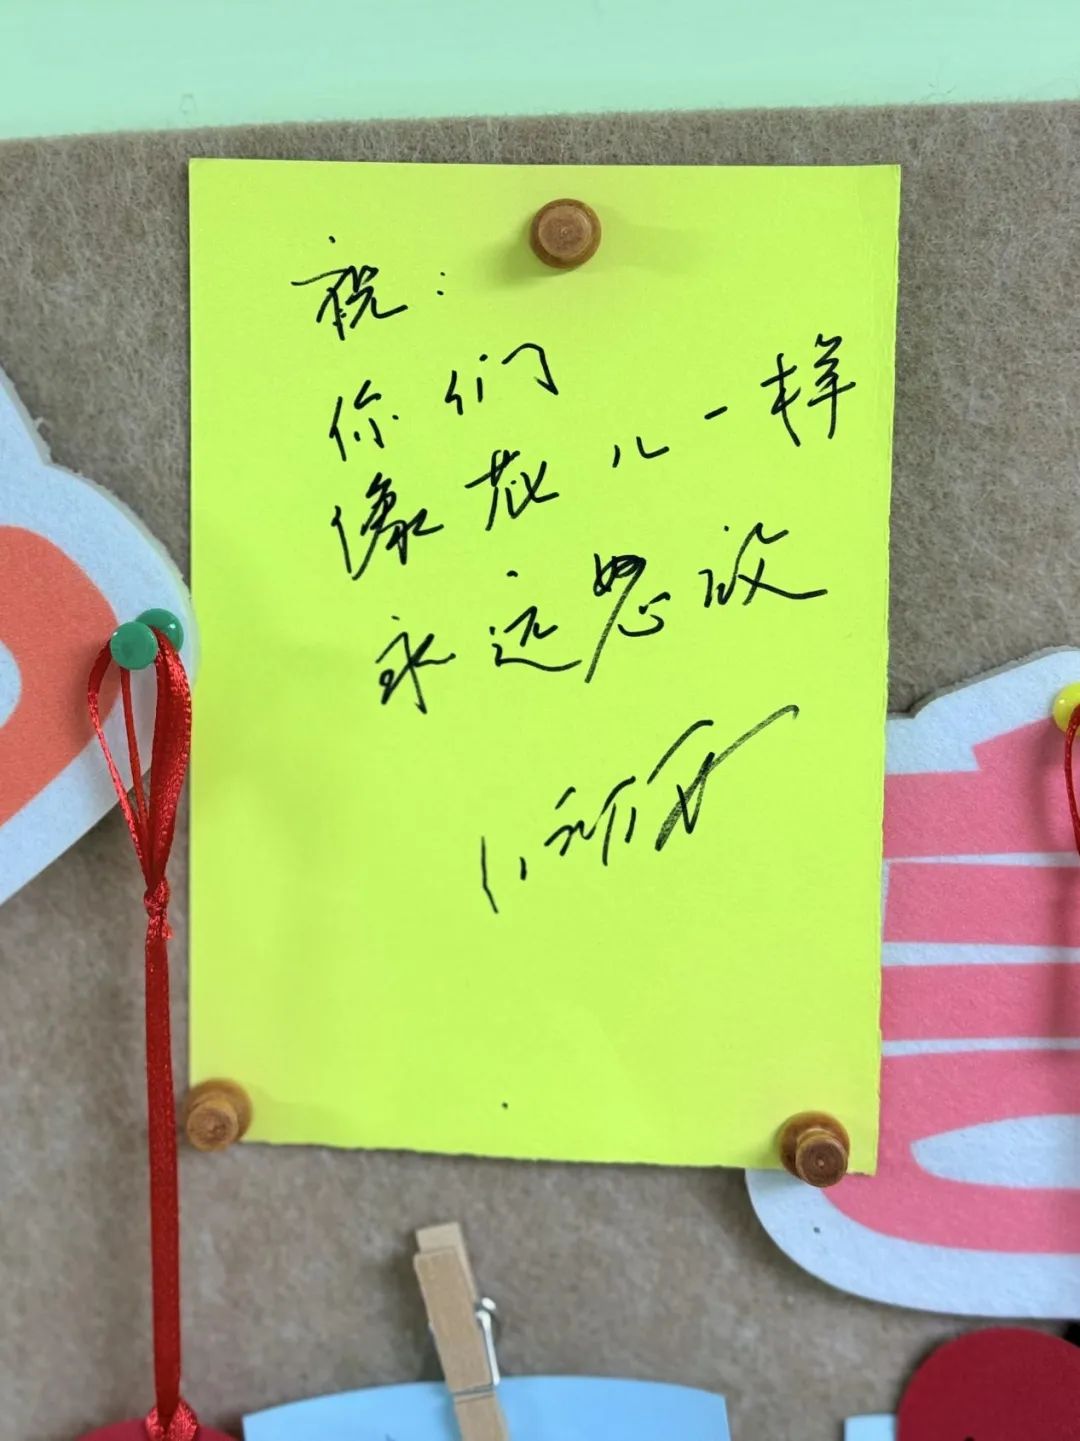 祝：
你们
像花儿一样
永远怒放